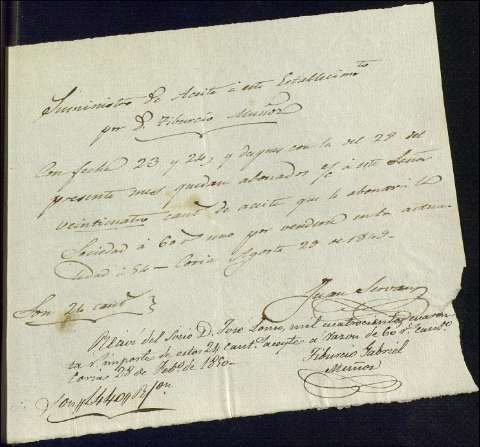 Suministro de Aceite á este Establecim.to
por D. Tiburcio Muñoz
Con fecha 23 y 24, y despues con la del 28 del
presente mes quedan abonados á este Señor
veinticuatro cant.s de aceite que le abonará la
Sociedad á 60 r.s uno por venderse en la actua-
lidad á 54 - Coria Agosto 29 de 1849-
Son 24 cant.s
Juan
Reciví del Socio D. Jose mil cuatrocientos cuaren
ta r.s importe de estas 24 cant.s aceyte a razon de 60 r.s cant.o
Coria 28 de Feb.o de 1850-
Tiburcio Gabriel
Muñoz
Son 1440 R.s on